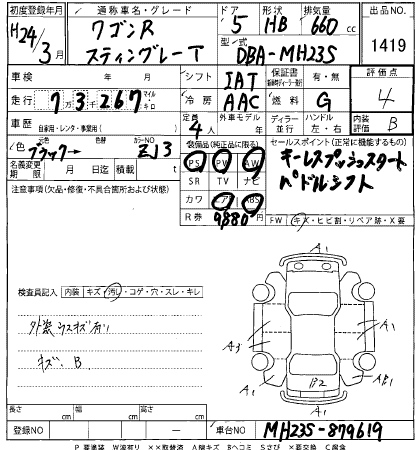 初度登録年月 通称車名・グレード ドア 形状 排気量 出品NO.
H24/3月 ワゴンR 5 HB 660cc 1419
スティングレーT 型式 DBA-MH23S
車検 年 月 シフト IAT 保証書 有・無 評価点
走行 73267 マイル キロ 冷房 AAC 燃料 G 4
車歴 自家用・レンタ・事業用( ) 定員 4人 外車モデル 年 ディーラー 並行 ハンドル 左・右 内装 B
色 元色 ブラック→ カラーNO ZJ3 装備品(純正品に限る) セールスポイント(正常に機能するもの)
PS PW AW キーレスプッシュスタート
名義変更期限 月 日迄 積載 t SR TV ナビ パドルシフト
注意事項(欠品・修復・不具合箇所および状態) カワ エアB ABS
R券 9880円 FW(キズ・ヒビ割・リペア跡・X要)
検査員記入 内装(キズ・汚レ・コゲ・穴・スレ・キレ)
外装ウスキズ有り
キズ、B
A1
A1
A3
B2
AB1
A1
A1
長さ cm 幅 cm 高さ cm
登録NO ー 車台NO MH23S-879619
P 要塗装 W波有り ××取替済 A線キズ Bヘコミ Sさび ×要交換 C腐食